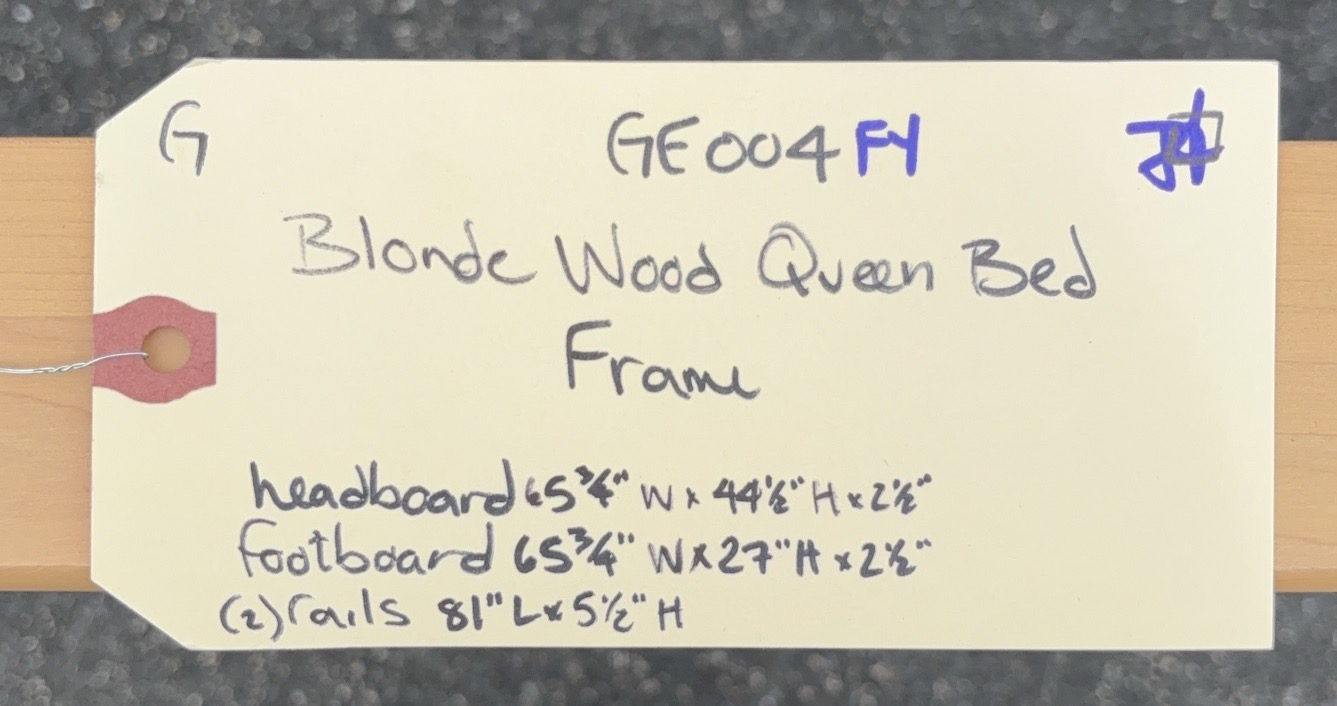 G GE004FY
Blonde Wood Queen Bed
Frame
headboard 65 3/4" W x 44 1/2" H x 2 1/2"
footboard 65 3/4" W x 27" H x 2 1/2"
(2) rails 81" L x 5 1/2" H